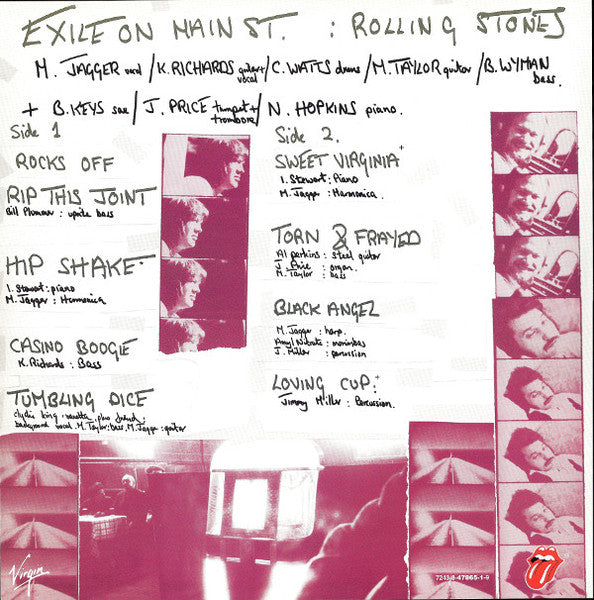 EXILE ON MAIN ST. : ROLLING STONES
M. JAGGER vocal / K. RICHARDS guitar + vocal / C. WATTS drums / M. TAYLOR guitar / B. WYMAN bass.
+ B. KEYS sax / J. PRICE trumpet + trombone / N. HOPKINS piano.
Side 1
ROCKS OFF
RIP THIS JOINT
Bill Plummer : uprite bass
HIP SHAKE
I. Stewart : piano
M. Jagger : Harmonica
CASINO BOOGIE
K. Richards : Bass
TUMBLING DICE
clydie king vanetta plus friend :
background vocal. M. Taylor : bass, M. Jagger : guitar
Side 2.
SWEET VIRGINIA +
I. Stewart : Piano
M. Jagger : Harmonica.
TORN & FRAYED
Al perkins : steel guitar
J. Price : organ.
M. Taylor : bass
BLACK ANGEL
M. Jagger : harp.
Amyl Nitrate : marimbas
J. Miller : percussion
LOVING CUP. +
Jimmy Miller : Percussion.
Virgin
7243 8-47865-1-9